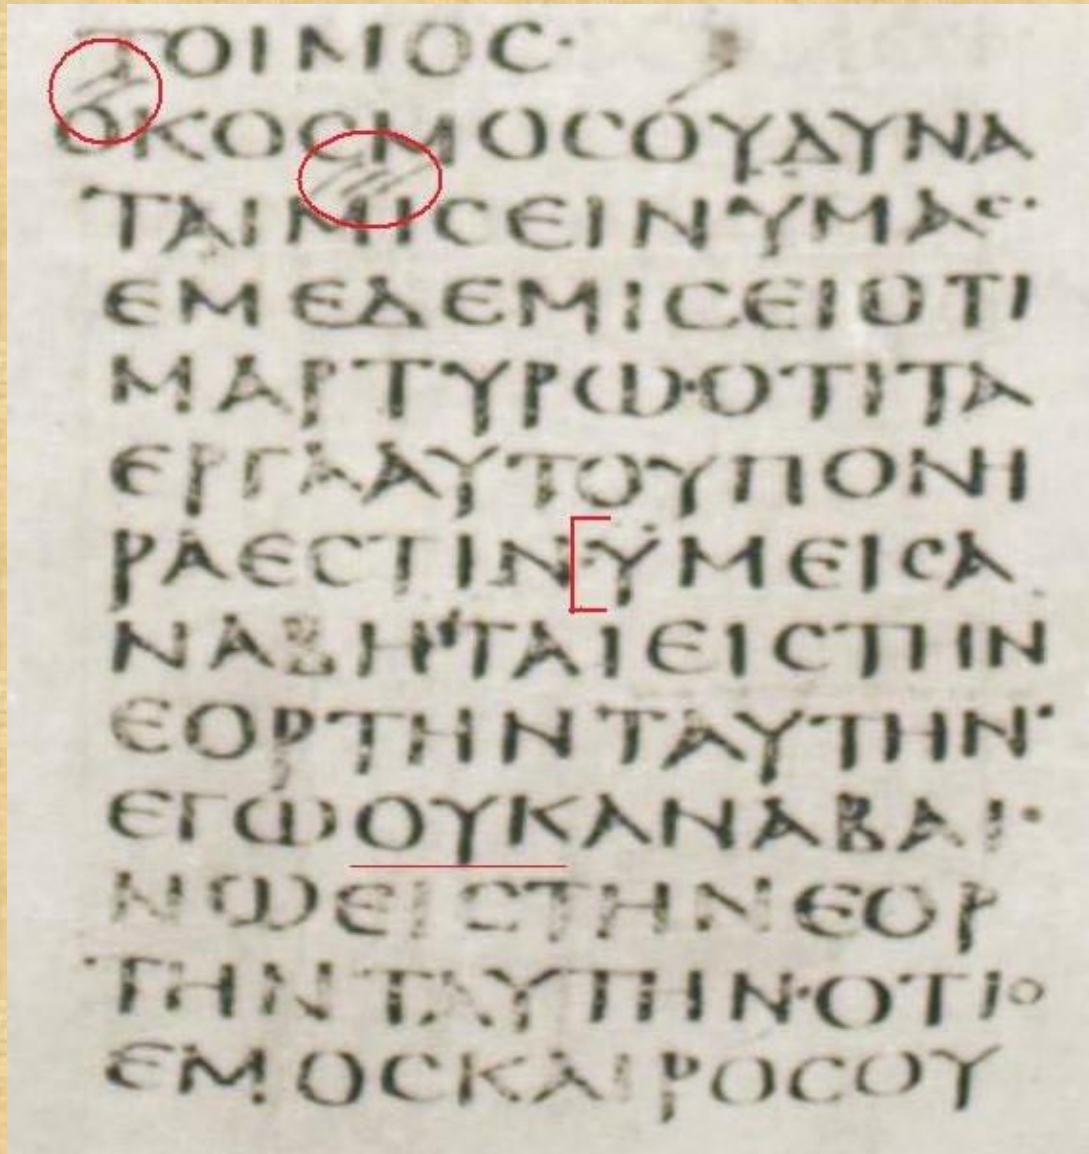 ΤΟΙΜΟΣ·
ΟΚΟΣΜΟΣΟΥΔΥΝΑ
ΤΑΙΜΙΣΕΙΝΥΜΑΣ·
ΕΜΕΔΕΜΙΣΕΙΟΤΙ
ΜΑΡΤΥΡΩ·ΟΤΙΤΑ
ΕΡΓΑΑΥΤΟΥΠΟΝΗ
ΡΑΕΣΤΙΝΫΜΕΙΣΑ
ΝΑΒΗΤΑΙΕΙΣΤΗΝ
ΕΟΡΤΗΝΤΑΥΤΗΝ·
ΕΓΩΟΥΚΑΝΑΒΑΙ·
ΝΩΕΙΣΤΗΝΕΟΡ
ΤΗΝΤΑΥΤΗΝ·ΟΤΙΟ
ΕΜΟΣΚΑΙΡΟΣΟΥ